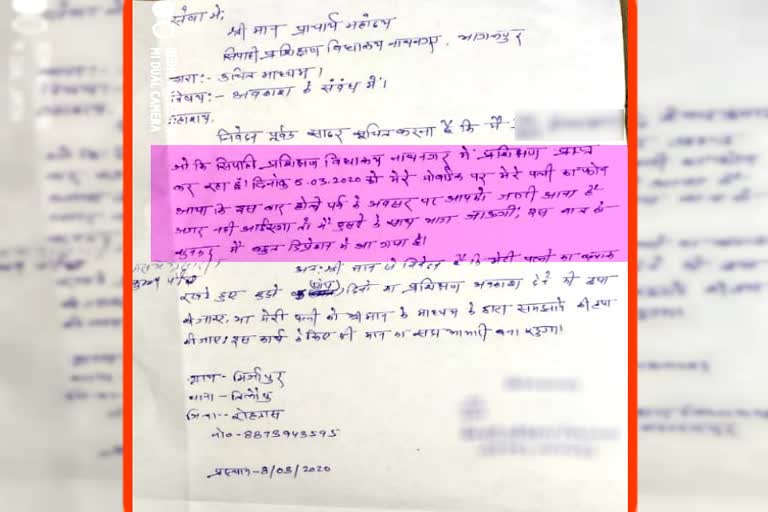 सेवा में,
श्री मान प्राचार्य महोदय
सिपाही प्रशिक्षण विद्यालय नाथनगर, भागलपुर
द्वारा:- उचित माध्यम।
विषय:- अवकाश के संबंध में।
महाशय,
निवेदन पूर्वक सादर सूचित करना है कि मैं
जो कि सिपाही प्रशिक्षण विद्यालय नाथनगर में प्रशिक्षण प्राप्त
कर रहा हूं। दिनांक 5.03.2020 को मेरे मोबाईल पर मेरे पत्नी का फोन
आया कि इस बार होली पर्व के अवसर पर आपको जल्दी आना है
अगर नहीं आईएगा तो मैं दुसरे के साथ भाग जाऊगी, इस बात को
सुनकर मैं बहुत डिप्रेशन में आ गया हूं।
अतः श्री मान से निवेदन है कि मेरी पत्नी का ख्याल
रखते हुए मुझे दिनों का प्रशिक्षण अवकाश देने की कृपा
की जाए, या मेरी पत्नी को श्री मान के माध्यम के द्वारा समझाने की कृपा
की जाए। इस कार्य के लिए श्री मान का सदा आभारी बना रहूगा।
ग्राम - मिर्जापुर
थाना -
जिला - रोहतास
मो०- 8873943595
प्रस्थान - 8/03/2020
MI DUAL CAMERA